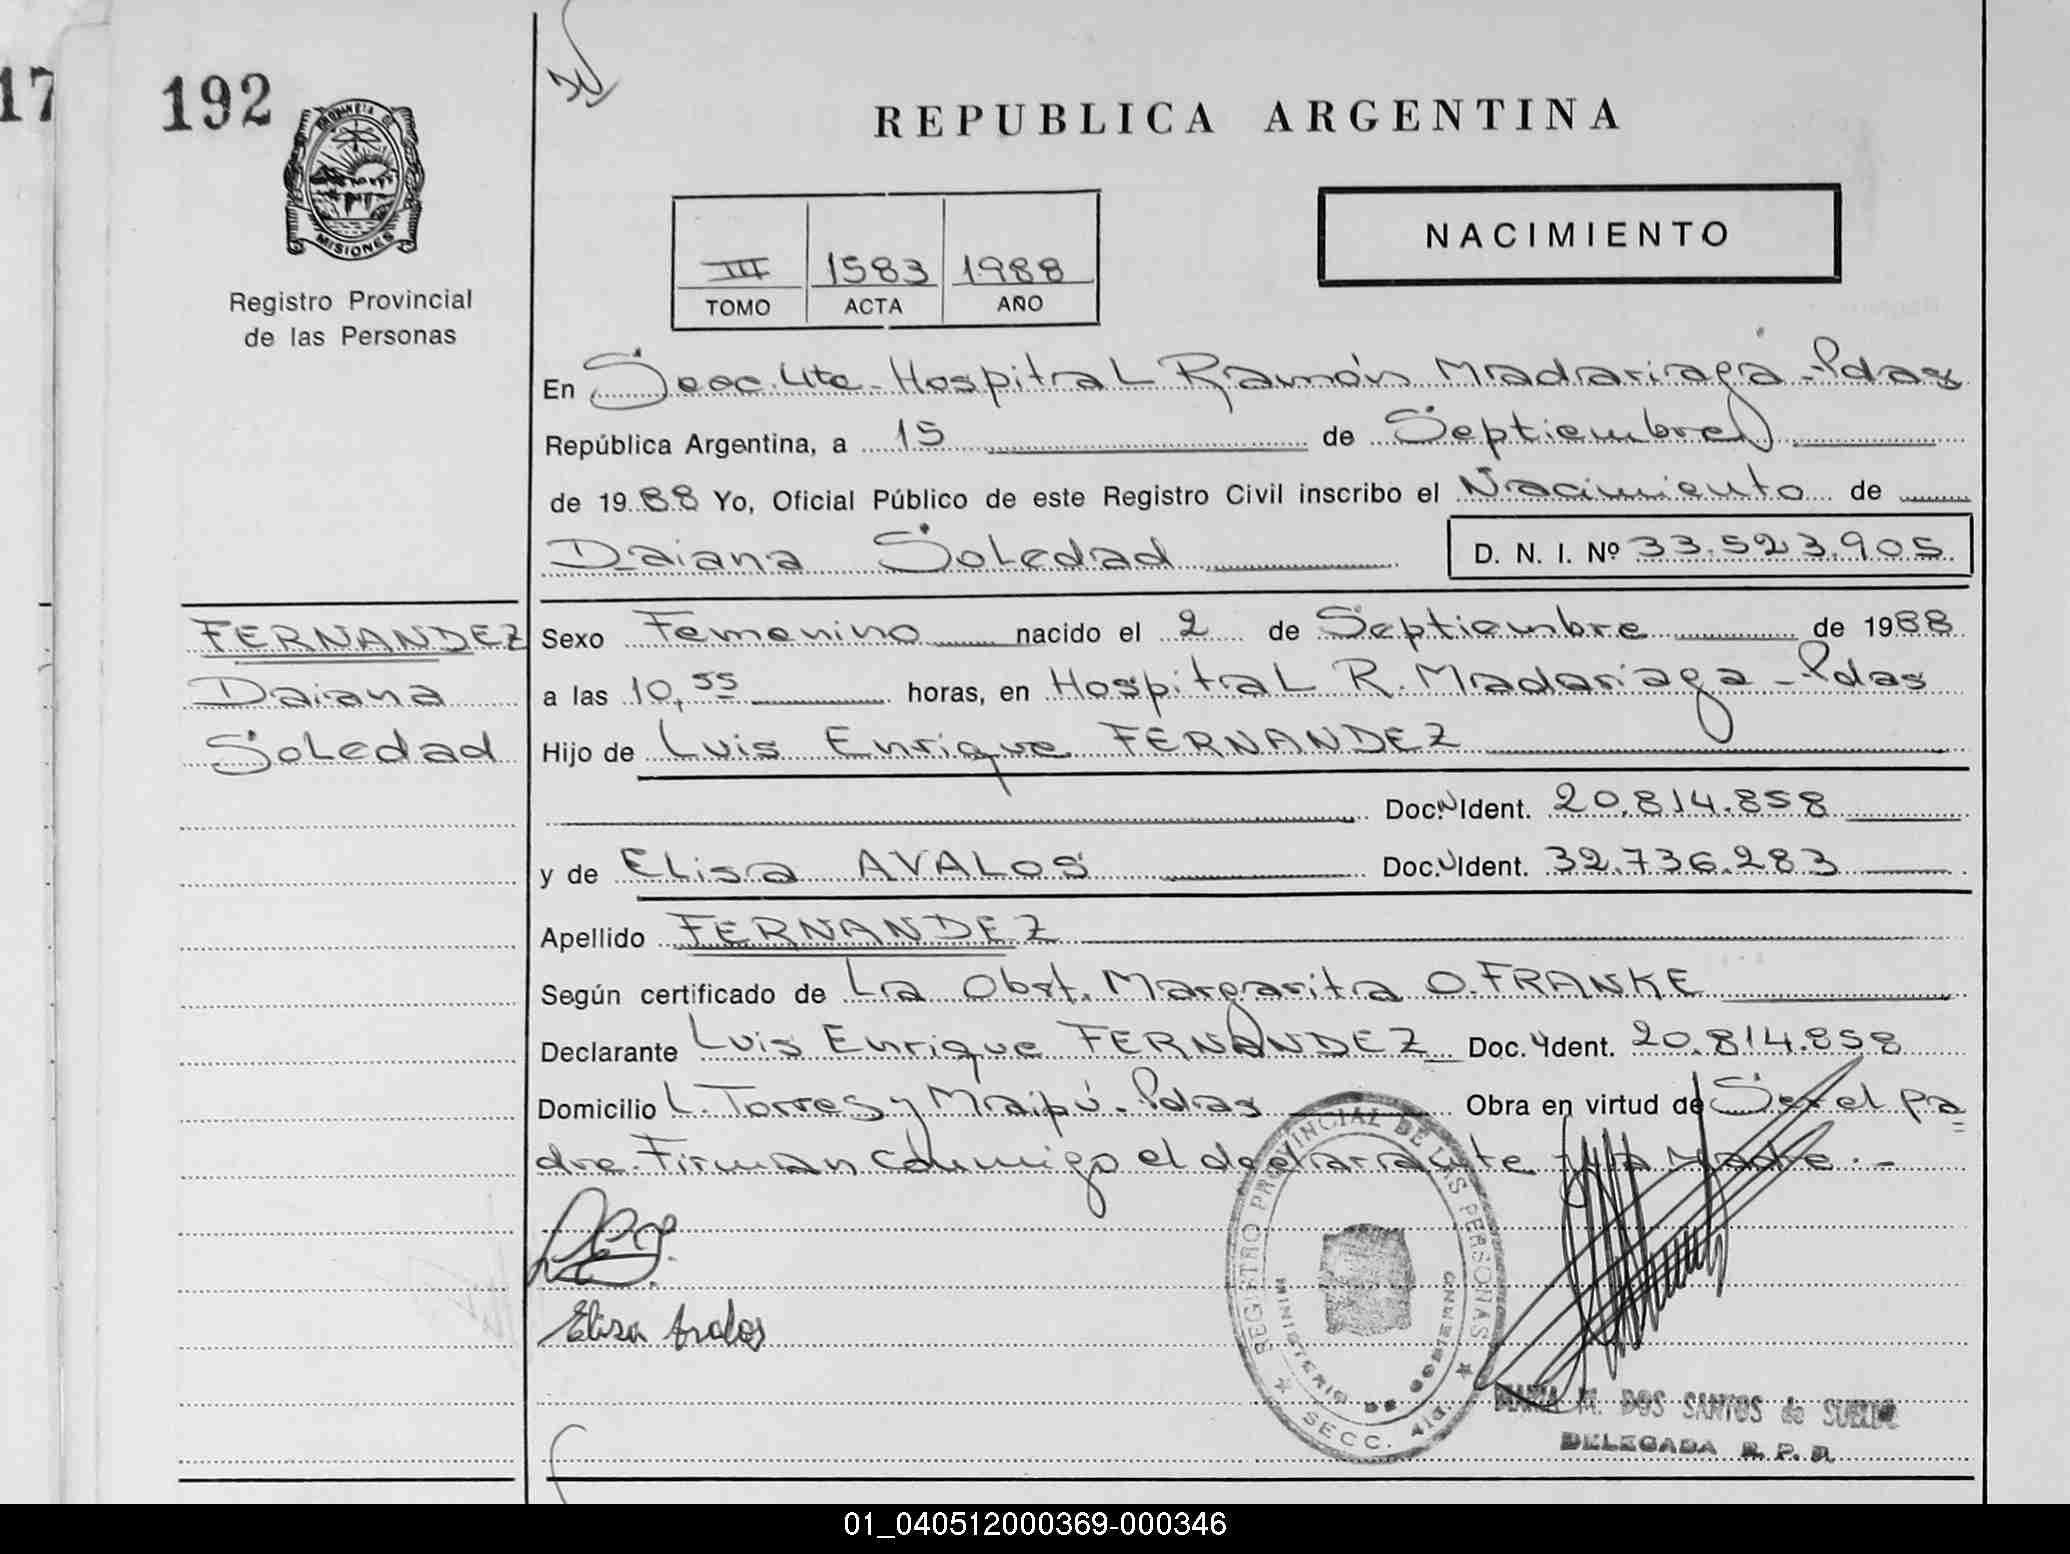 17
192
PROVINCIA DE
MISIONES
Registro Provincial
de las Personas
REPUBLICA ARGENTINA
NACIMIENTO
III 1583 1988
TOMO ACTA AÑO
En Secc. 4ta - Hospital Ramón Madariaga - Pdas
República Argentina, a 15 de Septiembre
de 1988 Yo, Oficial Público de este Registro Civil inscribo el Nacimiento de
Daiana Soledad D. N. I. Nº 33.523.905
FERNANDEZ
Daiana
Soledad
Sexo Femenino nacido el 2 de Septiembre de 1988
a las 10,55 horas, en Hospital R. Madariaga - Pdas
Hijo de Luis Enrique FERNANDEZ
Doc. N Ident. 20.814.858
y de Elisa AVALOS Doc. Ident. 32.736.283
Apellido FERNANDEZ
Según certificado de La Obst. Margarita O. FRANKE
Declarante Luis Enrique FERNANDEZ Doc. Ident. 20.814.858
Domicilio L. Torres y Maipú - Pdas Obra en virtud de Ser el pa=
dre. Firman conmigo el declarante y la Madre. -
Elisa Avalos
REGISTRO PROVINCIAL DE LAS PERSONAS
MINISTERIO DE GOBIERNO
SECC. 4ta
MARIA M. DOS SANTOS de
DELEGADA R. P. P.
01_040512000369-000346